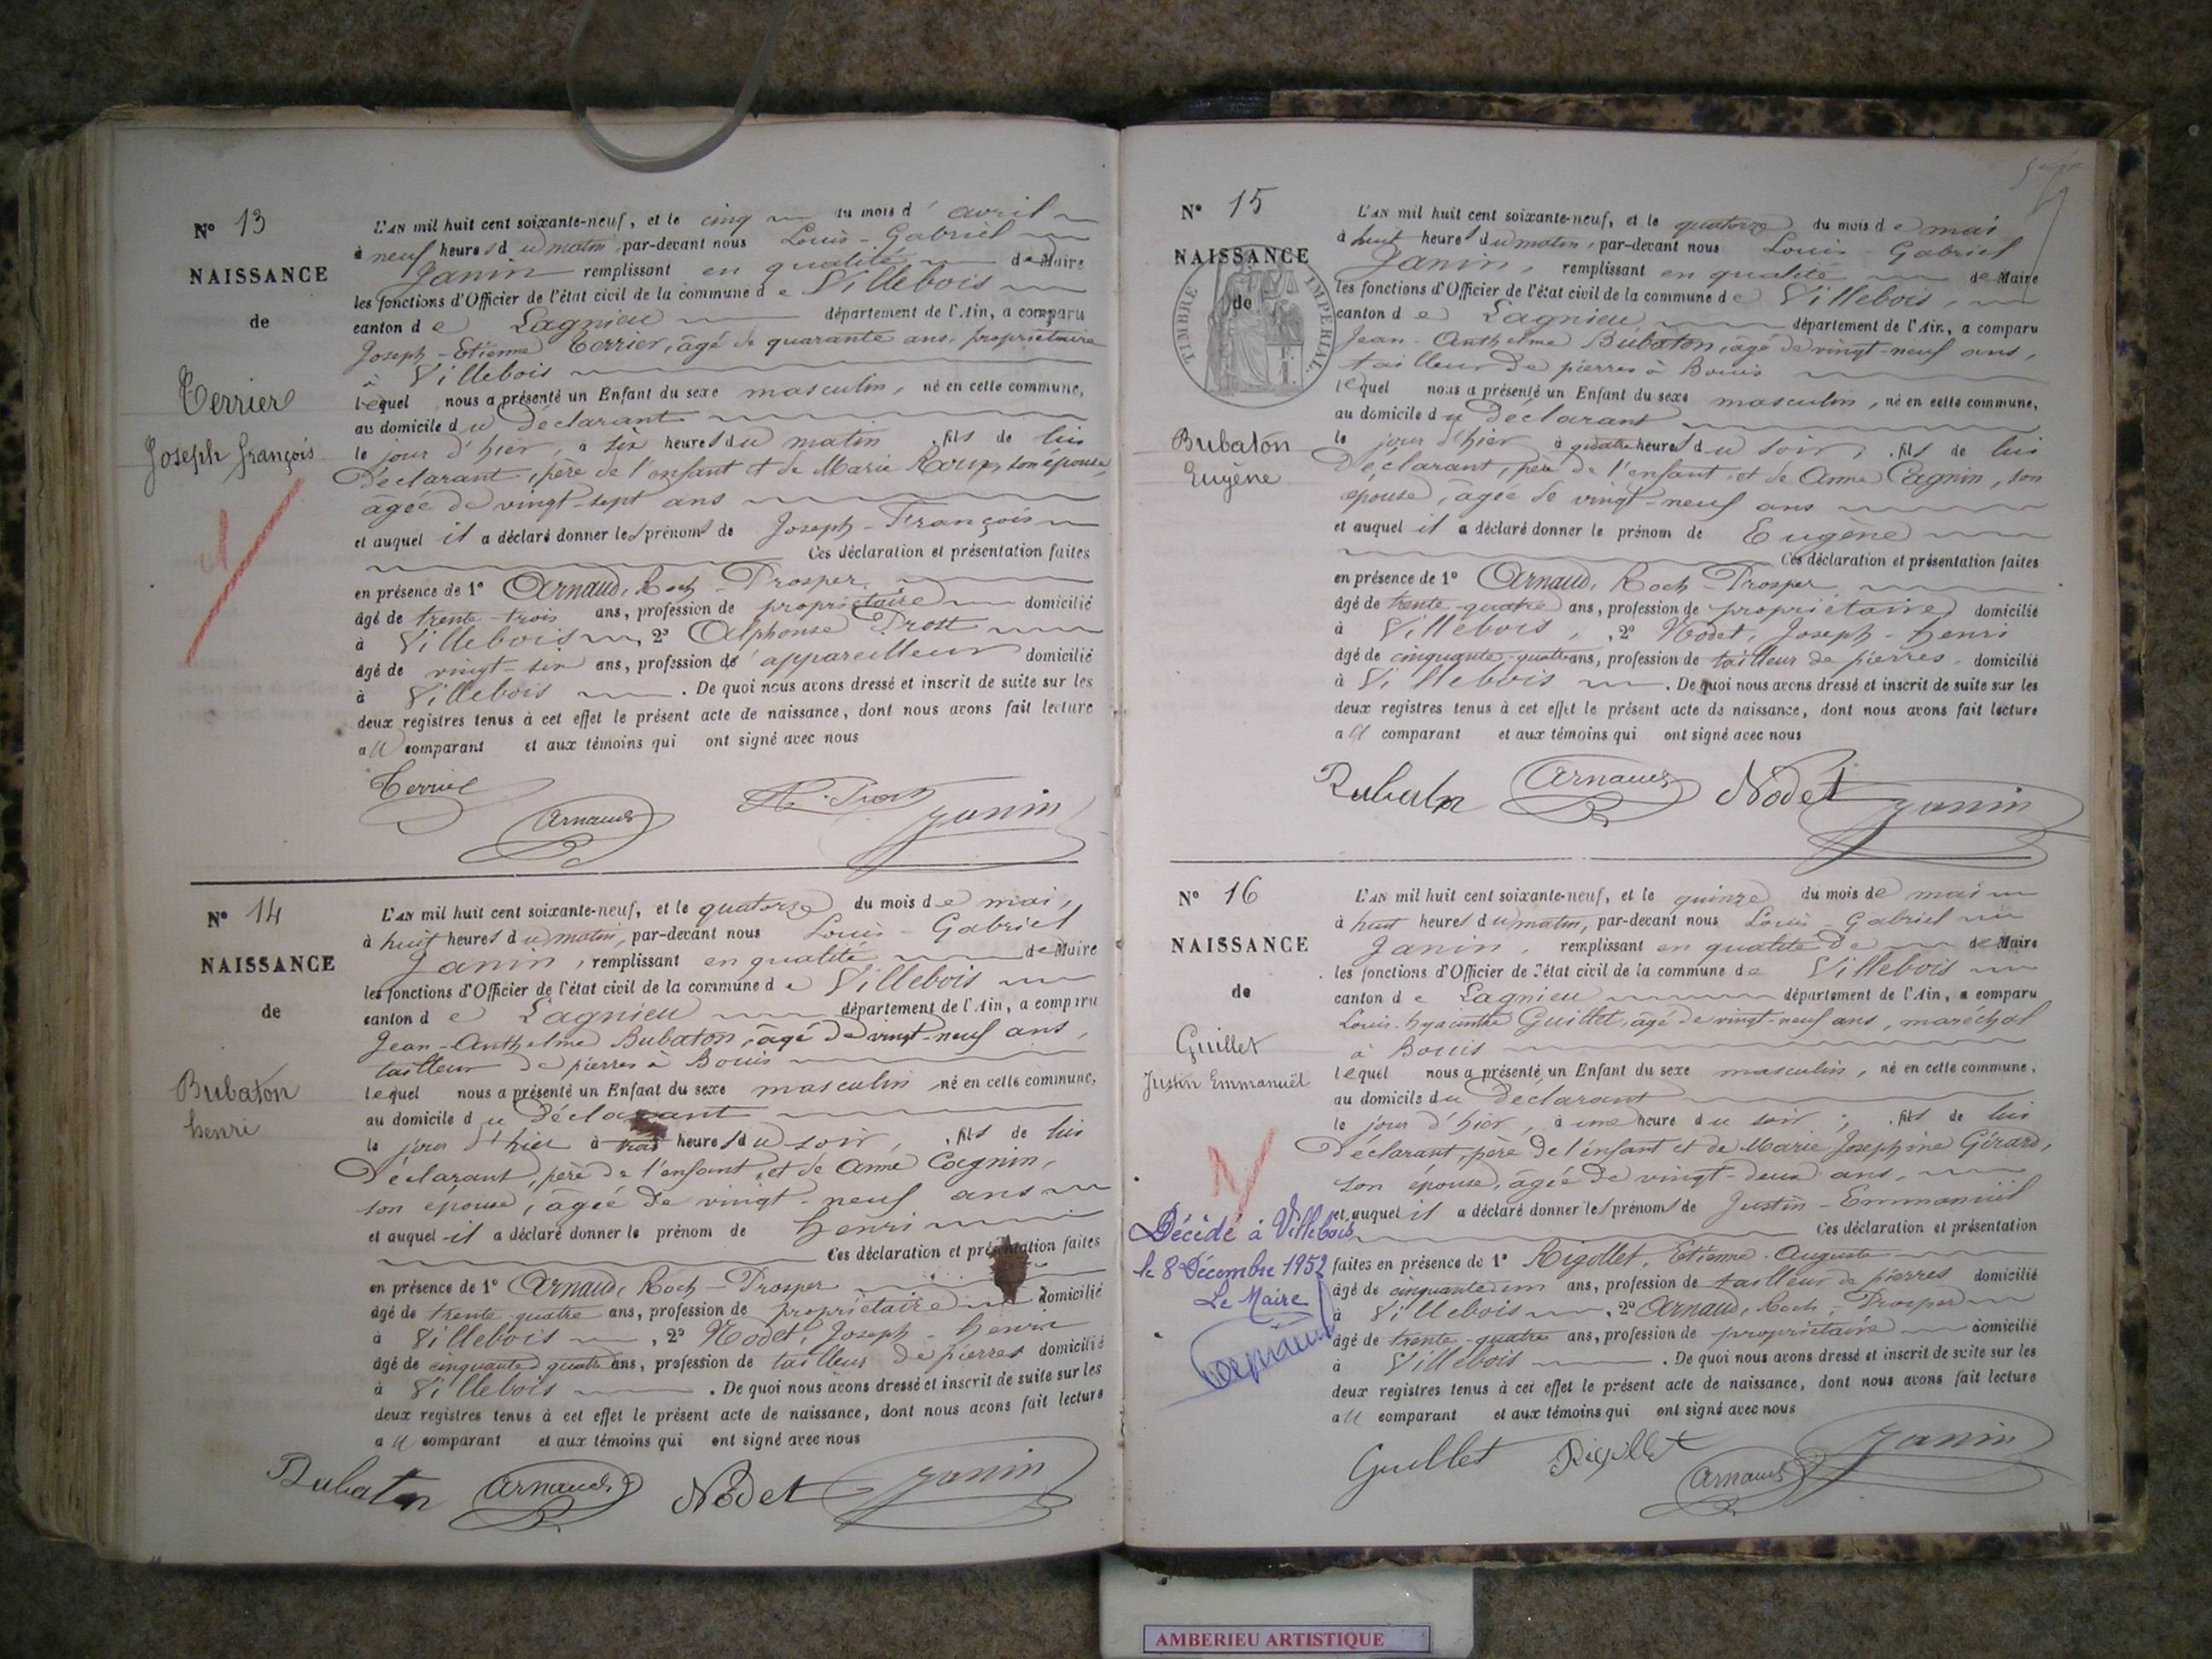 Nº 13
NAISSANCE
de
Terrier
Joseph françois
L'AN mil huit cent soixante-neuf, et le cinq du mois d'avril
à neuf heures du matin, par-devant nous Louis-Gabriel
Janin remplissant en qualité de Maire
les fonctions d'Officier de l'état civil de la commune de Villebois
canton de Lagnieu département de l'Ain, a comparu
Joseph-Etienne Terrier, âgé de quarante ans, propriétaire
à Villebois
lequel nous a présenté un Enfant du sexe masculin, né en cette commune,
au domicile du Déclarant
le jour d'hier, à six heures du matin, fils de lui
Déclarant, père de l'enfant et de Marie son épouse,
âgée de vingt-sept ans
et auquel il a déclaré donner les prénoms de Joseph-François
Ces déclaration et présentation faites
en présence de 1º Arnaud, Roch-Prosper
âgé de trente-trois ans, profession de propriétaire domicilié
à Villebois, 2º Alphonse Prost
âgé de vingt-six ans, profession d'appareilleur domicilié
à Villebois. De quoi nous avons dressé et inscrit de suite sur les
deux registres tenus à cet effet le présent acte de naissance, dont nous avons fait lecture
au comparant et aux témoins qui ont signé avec nous
Terrier
Arnaud
A. Prost
Janin
Nº 14
NAISSANCE
de
Bubaton
henri
L'AN mil huit cent soixante-neuf, et le quatorze du mois de mai,
à huit heures du matin, par-devant nous Louis-Gabriel
Janin, remplissant en qualité de Maire
les fonctions d'Officier de l'état civil de la commune de Villebois
canton de Lagnieu département de l'Ain, a comparu
Jean-Anthelme Bubaton, âgé de vingt-neuf ans,
tailleur de pierres à Bouis
lequel nous a présenté un Enfant du sexe masculin né en cette commune,
au domicile du Déclarant
le jour d'hier à trois heures du soir, fils de lui
Déclarant, père de l'enfant, et de Anne Cagnin,
son épouse, âgée de vingt-neuf ans
et auquel il a déclaré donner le prénom de henri
Ces déclaration et présentation faites
en présence de 1º Arnaud, Roch-Prosper
âgé de trente quatre ans, profession de propriétaire domicilié
à Villebois, 2º Nodet, Joseph-henri
âgé de cinquante quatre ans, profession de tailleur de pierres domicilié
à Villebois. De quoi nous avons dressé et inscrit de suite sur les
deux registres tenus à cet effet le présent acte de naissance, dont nous avons fait lecture
au comparant et aux témoins qui ont signé avec nous
Bubaton Arnaud Nodet Janin
Nº 15
NAISSANCE
de
TIMBRE IMPERIAL
Bubaton
Eugène
L'AN mil huit cent soixante-neuf, et le quatorze du mois de mai
à huit heures du matin, par-devant nous Louis Gabriel
Janin, remplissant en qualité de Maire
les fonctions d'Officier de l'état civil de la commune de Villebois,
canton de Lagnieu département de l'Ain, a comparu
Jean-Anthelme Bubaton, âgé de vingt-neuf ans,
tailleur de pierres à Bouis
lequel nous a présenté un Enfant du sexe masculin, né en cette commune,
au domicile du Déclarant
le jour d'hier à quatre heures du soir, fils de lui
Déclarant, père de l'enfant, et de Anne Cagnin, son
épouse, âgée de vingt-neuf ans
et auquel il a déclaré donner le prénom de Eugène
Ces déclaration et présentation faites
en présence de 1º Arnaud, Roch-Prosper
âgé de trente-quatre ans, profession de propriétaire domicilié
à Villebois, 2º Nodet, Joseph-henri
âgé de cinquante-quatre ans, profession de tailleur de pierres domicilié
à Villebois. De quoi nous avons dressé et inscrit de suite sur les
deux registres tenus à cet effet le présent acte de naissance, dont nous avons fait lecture
au comparant et aux témoins qui ont signé avec nous
Bubaton Arnaud Nodet Janin
Nº 16
NAISSANCE
de
Guillet
Justin Emmanuël
Décédé à Villebois
le 8 Décembre 1952
Le Maire
L'AN mil huit cent soixante-neuf, et le quinze du mois de mai
à huit heures du matin, par-devant nous Louis Gabriel
Janin, remplissant en qualité de de Maire
les fonctions d'Officier de l'état civil de la commune de Villebois
canton de Lagnieu département de l'Ain, a comparu
Louis-hyacinthe Guillet, âgé de vingt-neuf ans, maréchal
à Bouis
lequel nous a présenté un Enfant du sexe masculin, né en cette commune,
au domicile du Déclarant
le jour d'hier, à une heure du soir; fils de lui
Déclarant, père de l'enfant et de Marie Josephine Girard,
son épouse, âgée de vingt-deux ans,
et auquel il a déclaré donner les prénoms de Justin-Emmanuël
Ces déclaration et présentation
faites en présence de 1º Rigollet, Etienne-Auguste
âgé de cinquante un ans, profession de tailleur de pierres domicilié
à Villebois, 2º Arnaud, Roch-Prosper
âgé de trente-quatre ans, profession de propriétaire domicilié
à Villebois. De quoi nous avons dressé et inscrit de suite sur les
deux registres tenus à cet effet le présent acte de naissance, dont nous avons fait lecture
au comparant et aux témoins qui ont signé avec nous
Guillet Rigollet Arnaud Janin
AMBERIEU ARTISTIQUE